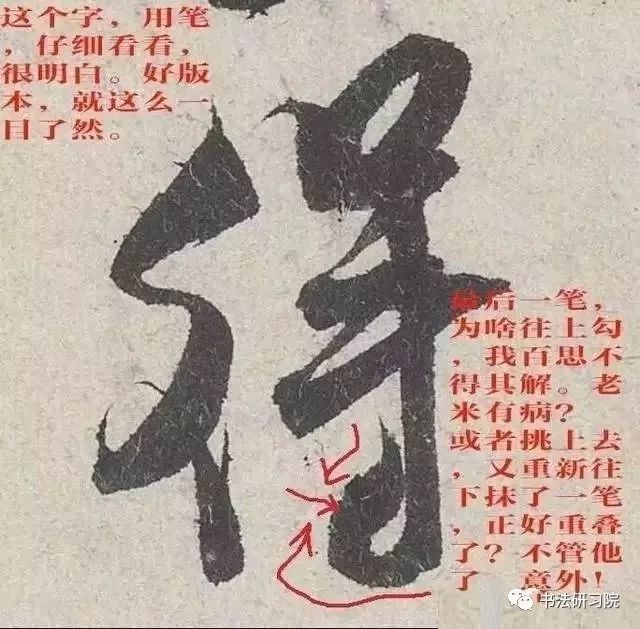 这个字，用笔
，仔细看看，
很明白。好版
本，就这么一
目了然。
得
最后一笔，
为啥往上勾
，我百思不
得其解。老
米有病？
或者挑上去
，又重新往
下抹了一笔
，正好重叠
了？不管他
了，意外！
书法研习院